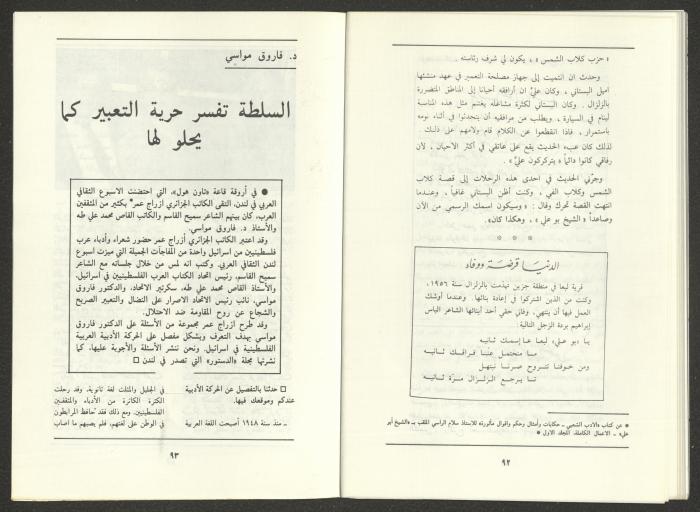 « حزب كلاب الشمس » ، يكون لي شرف رئاسته .
وحدث ان انتميت إلى جهاز مصلحة التعمير في عهد منشئها
أميل البستاني ، وكان عليّ ان أرافقه أحيانا إلى المناطق المتضررة
بالزلزال . وكان البستاني لكثرة مشاغله يغتنم مثل هذه المناسبة
لينام في السيارة ، ويطلب من مرافقيه أن يتحدثوا في أثناء نومه
باستمرار ، فاذا انقطعوا عن الكلام قام ولامهم على ذلك .
لذلك كان عبء الحديث يقع على عاتقي في أكثر الاحيان ، لأن
رفاقي كانوا دائماً « يتركركون عليّ » .
وجرّني الحديث في احدى هذه الرحلات إلى قصة كلاب
الشمس وكلاب الفي ، وكنت أظن البستاني غافياً ، وعندما
انتهت القصة تحرك وقال : « وسيكون اسمك الرسمي من الآن
وصاعداً « الشيخ بو علي » ، وهكذا كان» .
* * *
الدنيا قرضة ووفاء
قرية لبعا في منطقة جزين تهدّمت بالزلزال سنة ١٩٥٦ ،
وكنت من الذين اشتركوا في إعادة بنائها . وعندما أوشك
العمل فيها أن ينتهي ، وقال لي أحد أبنائها الشاعر الياس
إبراهيم بردة الزجل التالية :
يا (بو علي) لبعا عاسمك ثانيه
ما منحتمل عنّا فراقك ثانيه
ومن خوفنا تتروح صرنا نبتهل
تنا يرجع الزلزال مرّة ثانيه
* عن كتاب «الادب الشعبي ـ حكايات وأمثال وحكم واقوال مأثورة» للاستاذ سلام الراسي الملقب بـ «الشيخ أبو
علي» ـ الاعمال الكاملة، المجلد الاول *
٩٢
د. فاروق مواسي
السلطة تفسر حرية التعبير كما
يحلو لها
● في أروقة قاعة «تاون هول»، التي احتضنت الاسبوع الثقافي
العربي في لندن، التقى الكاتب الجزائري أزراج عمر* بكثير من المثقفين
العرب، كان بينهم الشاعر سميح القاسم والكاتب القاص محمد علي طه
والأستاذ د. فاروق مواسي.
وقد اعتبر الكاتب الجزائري أزراج عمر حضور شعراء وأدباء عرب
فلسطينيين من اسرائيل واحدة من المفاجآت الجميلة التي ميزت اسبوع
لندن الثقافي العربي. وكتب انه لمس من خلال جلساته مع الشاعر
سميح القاسم، رئيس اتحاد الكتاب العرب الفلسطينيين في اسرائيل،
والأستاذ القاص محمد علي طه، سكرتير الاتحاد، والدكتور فاروق
مواسي، نائب رئيس الاتحاد الاصرار على النضال والتعبير الصريح
والشجاع عن روح المقاومة ضد الاحتلال.
وقد طرح أزراج عمر مجموعة من الأسئلة على الدكتور فاروق
مواسي بهدف التعرف وبشكل مفصل على الحركة الأدبية العربية
الفلسطينية في اسرائيل. ونحن ننشر الأسئلة والأجوبة عليها، كما
نشرتها مجلة «الدستور» التي تصدر في لندن □
□ حدثنا بالتفصيل عن الحركة الأدبية
عندكم وموقعك فيها.
ـ منذ سنة ١٩٤٨ أصبحت اللغة العربية
في الجليل والمثلث لغة ثانوية، وقد رحلت
الكثرة الكاثرة من الأدباء والمثقفين
الفلسطينيين. ومع ذلك فقد حافظ المرابطون
في الوطن على لغتهم، فلم يصبهم ما اصاب
٩٣